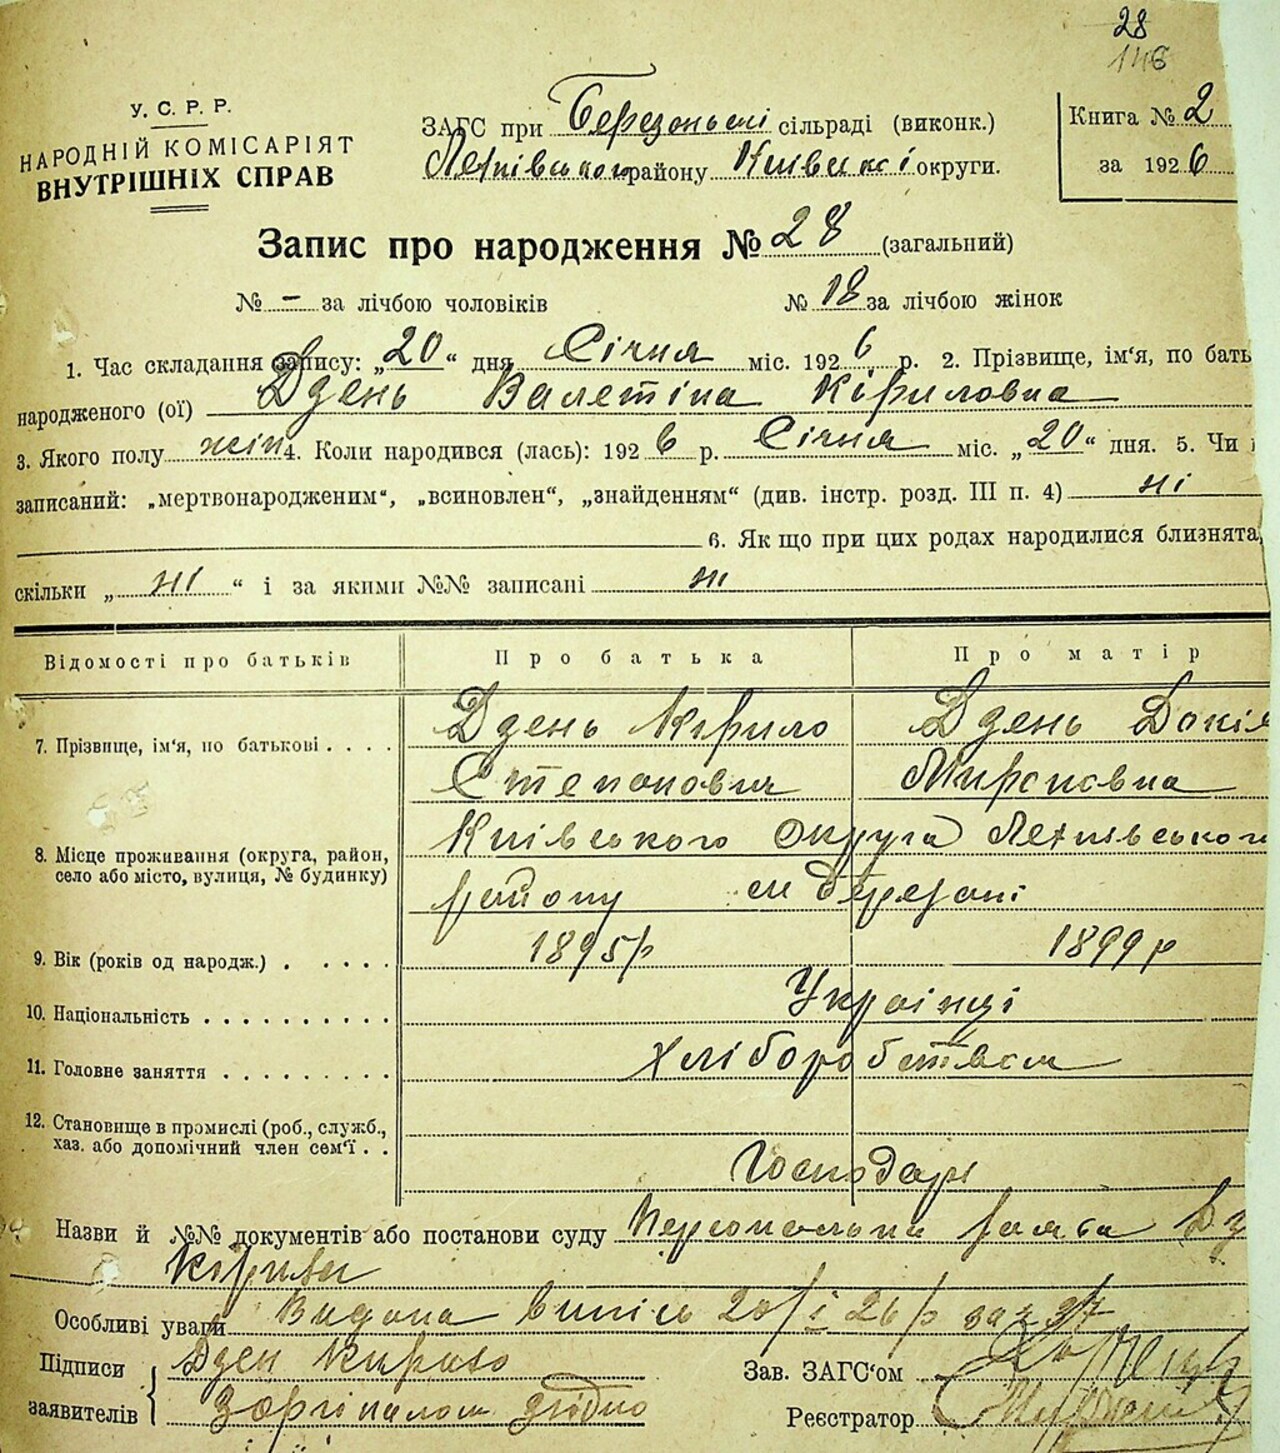 28
146
У. С. Р. Р.
НАРОДНІЙ КОМІСАРІЯТ
ВНУТРІШНІХ СПРАВ
ЗАГС при Березонські сільраді (виконк.)
району Київські округи.
Книга № 2
за 1926
Запис про народження № 28 (загальний)
№ - за лічбою чоловіків № 18 за лічбою жінок
1. Час складання запису: „20“ дня Січня міс. 1926 р. 2. Прізвище, ім‘я, по бать
народженого (ої) Дзень Валетіна Кіриловна
3. Якого полу жін 4. Коли народився (лась): 1926 р. Січня міс. „20“ дня. 5. Чи
записаний: „мертвонародженим“, „всиновлен“, „знайденням“ (див. інстр. розд. III п. 4) ні
6. Як що при цих родах народилися близнята,
скільки „ні“ і за якими №№ записані ні
Відомості про батьків Про батька Про матір
7. Прізвище, ім‘я, по батькові . . . . Дзень Кірило Дзень Докія
Степанович Мироновна
8. Місце проживання (округа, район, село або місто, вулиця, № будинку) Київського Округа
району Березані
9. Вік (років од народж.) . . . . . 1895р 1899р
10. Національність . . . . . . . . . . Українці
11. Головне заняття . . . . . . . . . Хліборобством
12. Становище в промислі (роб., служб.,
хаз. або допомічний член сем‘ї . . Господарі
Назви й №№ документів або постанови суду Персональна
Особливі уваги Видана випісь 20/I 26р за № 27
Підписи Дзен Кирило Зав. ЗАГС‘ом
заявителів З оргіналом згідно Реєстратор